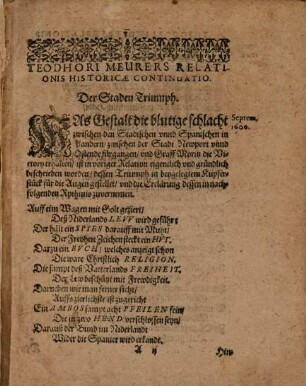 TEODHORI MEURERS RELATI-
ONIS HISTORICÆ CONTINUATIO.
Der Staden Triumph.
WAs Gestalt die blutige schlacht
Septem.
1600.
zwischen den Stadischen vnnd Spanischen in
Flandern/ zwischen der Stadt Newport vnnd
Ostende fürgangen/ vnd Graff Moritz die Vi-
ctory erhalten/ ist in voriger Relation eigentlich vnd gründtlich
beschrieben worden/ dessen Triumph in beygelegtem Kupffer-
stück für die Augen gestellet/ vnd die Erklärung dessen in nach-
folgenden Rythmis zuvernemen.
Auff eim Wagen mit Golt geziert/
Deß Niderlands LEVV wird geführt/
Der helt ein SPIES darauff mit Muht/
Der Freyheit Zeichen steckt ein HVT,
Darzu ein BVCH/ welches anzeigt schon
Die ware Christlich RELIGION,
Die sampt deß Vaterlands FREIHEIT,
Der Lew beschützt mit Frewdigkeit.
Darneben wir man ferner sicht/
Auffs zierlichste ist zugericht
Ein AMBOS sampt acht PFEILEN fein/
Die in zwo HEND verschlossen seyn/
Daraus der Bund im Niderlandt
Wider die Spanier wird erkandt.
A ij
Hin-